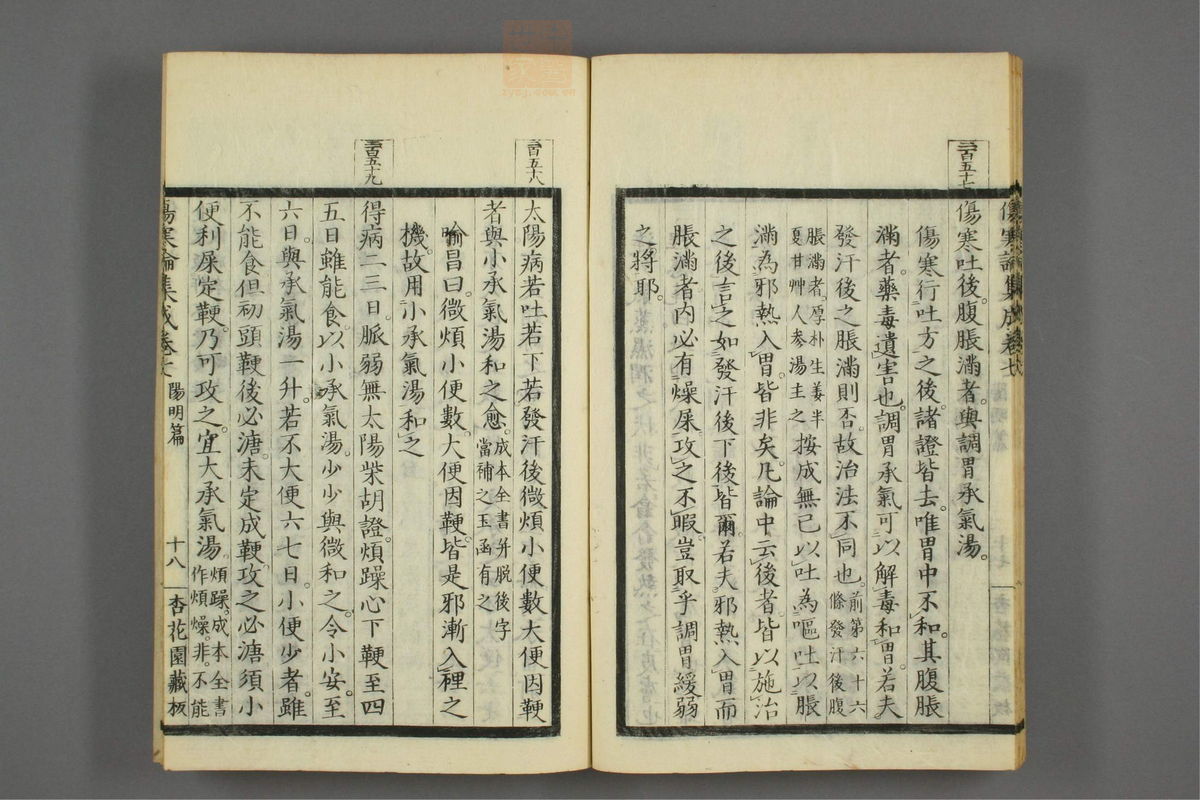 二百五十七
傷寒論集成卷七
傷寒吐後。腹脹滿者。與調胃承氣湯。
傷寒行吐方之後。諸證皆去。唯胃中不和。其腹脹
滿者。藥毒遺害也。調胃承氣可以解毒和胃。若夫
發汗後之脹滿則否。故治法不同也。前第六十六條發汗後腹
脹滿者。厚朴生姜半夏甘艸人參湯主之按成無已以吐為嘔吐以脹
滿為邪熱入胃。皆非矣。凡論中云後者。皆以施治
之後言之。如發汗後下後皆爾。若夫邪熱入胃而
脹滿者。内必有燥屎。攻之不暇。豈取乎調胃緩弱
之將耶。
二百五十八
太陽病若吐若下若發汗後微煩小便數大便因鞕
者與小承氣湯和之愈。成本全書併脫後字當補之玉函有之
喻昌曰。微煩小便數。大便因鞕。皆是邪漸入裡之
機。故用小承氣湯和之
二百五十九
得病二三日。脈弱無太陽柴胡證。煩躁心下鞕至四
五日雖能食。以小承氣湯。少少與微和之。令小安。至
六日。與承氣湯一升。若不大便六七日。小便少者。雖
不能食。但初頭鞕後必溏。未定成鞕。攻之必溏。須小
便利屎定鞕。乃可攻之。宜大承氣湯。煩躁。成本全書作煩燥。非。不能
傷寒論集成卷七 陽明篇 十八 杏花園藏板